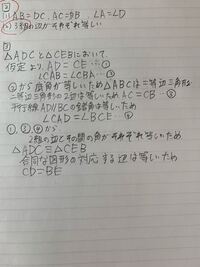 2
(1) AB=DC, AC=DB ∠A=∠D
(2) 3組の辺がそれぞれ等しい
3
△ADCと△CEBにおいて
仮定より、AD=CE…①
∠CAB=∠CBA…②
②から底角が等しいため△ABCは二等辺三角形
二等辺三角形の2辺は等しいため AC=CB…③
平行線AD//BCの錯角は等しいため
∠CAD=∠BCE…④
①,③,④から
2組の辺とその間の角がそれぞれ等しいため
△ADC≡△CEB
合同な図形の対応する辺は等しいため
CD=BE